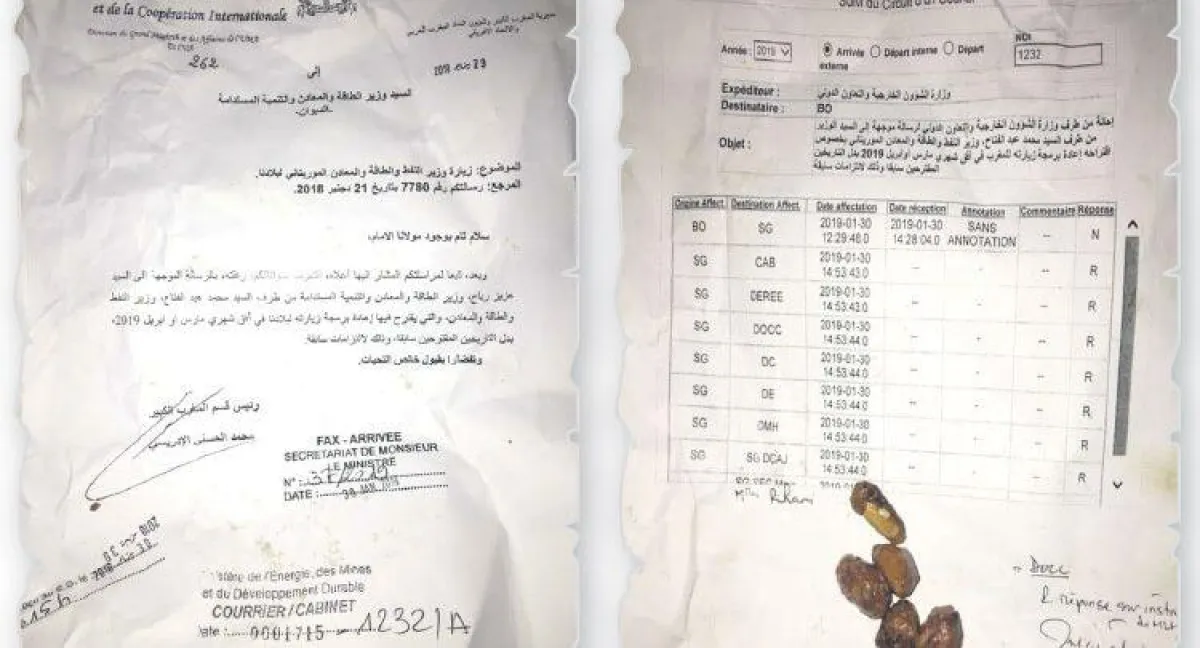 et de la Coopération Internationale
مديرية المغرب الكبير وشؤون اتحاد المغرب العربي
والاتحاد الافريقي
262
إلى
السيد وزير الطاقة والمعادن والتنمية المستدامة
-الديوان-
الموضوع: زيارة وزير النفط والطاقة والمعادن الموريتاني لبلادنا.
المرجع: رسالتكم رقم 7780 بتاريخ 21 دجنبر 2018.
سلام تام بوجود مولانا الامام،
وبعد، تبعا لمراسلتكم المشار اليها أعلاه، رفقته، بالرسالة الموجهة الى السيد
عزيز رباح، وزير الطاقة والمعادن والتنمية المستدامة من طرف، السيد محمد عبد الفتاح، وزير النفط
والطاقة والمعادن، والتي يقترح فيها إعادة برمجة زيارته لبلادنا في أفق شهري مارس او ابريل 2019،
بدل التاريخين المقترحين سابقا، وذلك لالتزامات سابقة.
وتفضلوا بقبول خالص التحيات.
رئيس قسم المغرب الكبير
محمد الحسني الإدريسي
FAX - ARRIVEE
SECRETARIAT DE MONSIEUR
LE MINISTRE
N° :
DATE :
de l'Energie, des Mines
et du Développement Durable
COURRIER/CABINET
0001715 12321/A
Suivi du Circuit d'un Courrier
Année : 2019 Arrivée Départ interne Départ
externe
NOI
1232
Expéditeur : وزارة الشؤون الخارجية والتعاون الدولي
Destinataire : BO
Objet :
إحالة من طرف وزارة الشؤون الخارجية والتعاون الدولي لرسالة موجهة إلى السيد الوزير
من طرف السيد محمد عبد الفتاح، وزير النفط والطاقة والمعادن الموريتاني بخصوص
اقتراحه إعادة برمجة زيارته للمغرب في أفق شهري مارس أوابريل 2019 بدل التاريخين
المقترحين سابقا وذلك لالتزامات سابقة
Origine Affect. Destination Affect. Date affectation Date réception Annotation Commentaire Réponse
BO SG 2019-01-30 12:29:46.0 2019-01-30 14:28:04.0 SANS ANNOTATION -- N
SG CAB 2019-01-30 14:53:43.0 -- - -- R
SG DEREE 2019-01-30 14:53:43.0 -- - -- R
SG DOCC 2019-01-30 14:53:44.0 -- - -- R
SG DC 2019-01-30 14:53:44.0 -- - -- R
SG DE 2019-01-30 14:53:44.0 -- - -- R
SG DMH 2019-01-30 14:53:44.0 -- - -- R
SG SG DCAJ 2019-01-30 14:53:44.0 -- - -- R